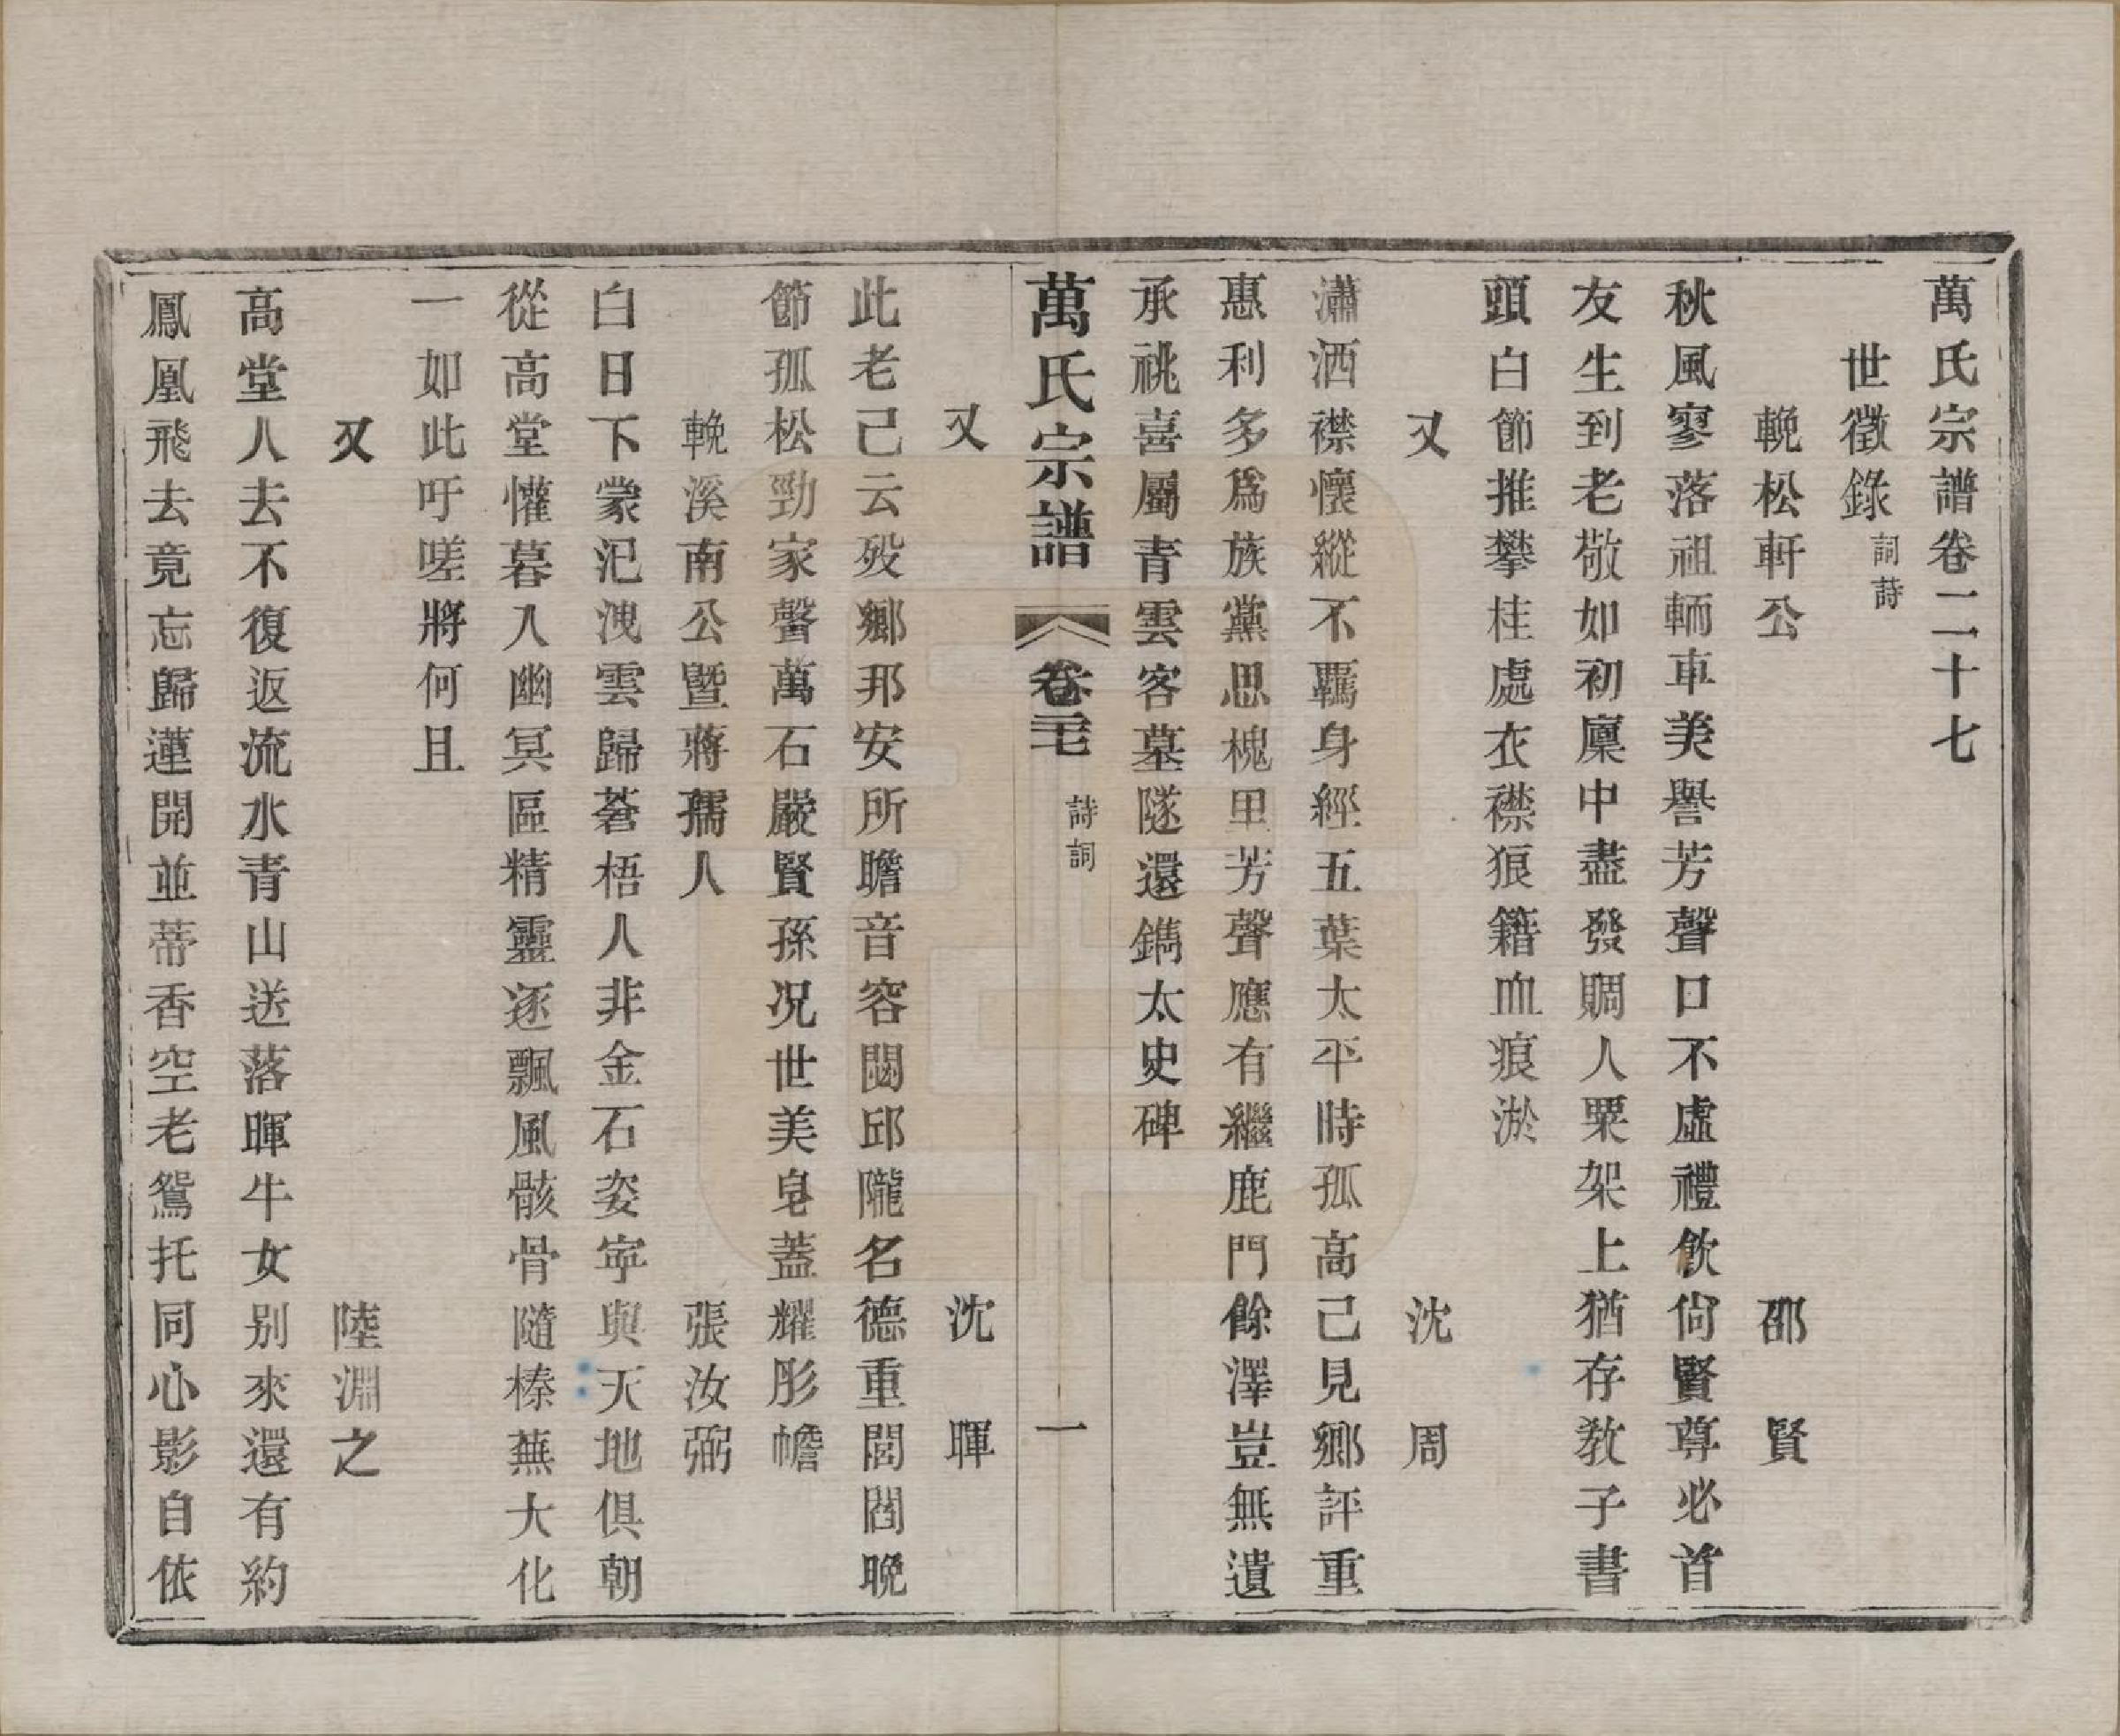 萬氏宗譜卷二十七
世徵錄詞詩
輓松軒公 邵賢
秋風寥落祖輀車美譽芳聲口不虛禮飲尙賢尊必首
友生到老敬如初廩中盡發賙人粟架上猶存教子書
頭白節推攀桂處衣襟狼籍血痕淤
又 沈周
瀟洒襟懷縱不羈身經五葉太平時孤高己見鄉評重
惠利多爲族黨思槐里芳聲應有繼鹿門餘澤豈無遺
承祧喜屬青雲客墓隧還鐫太史碑
萬氏宗譜 卷二十七 詩詞 一
又 沈暉
此老己云歿鄉邦安所瞻音容閟邱隴名德重閭閻晚
節孤松勁家聲萬石嚴賢孫况世美皂蓋耀彤幨
輓溪南公曁蔣孺人 張汝弼
白日下濛汜洩雲歸蒼梧人非金石姿寜與天地俱朝
從高堂懽暮入幽冥區精靈逐飄風骸骨隨榛蕪大化
一如此吁嗟將何且
又 陸淵之
高堂人去不復返流水青山送落暉牛女别來還有約
鳳凰飛去竟忘歸蓮開並蒂香空老鴛托同心影自依